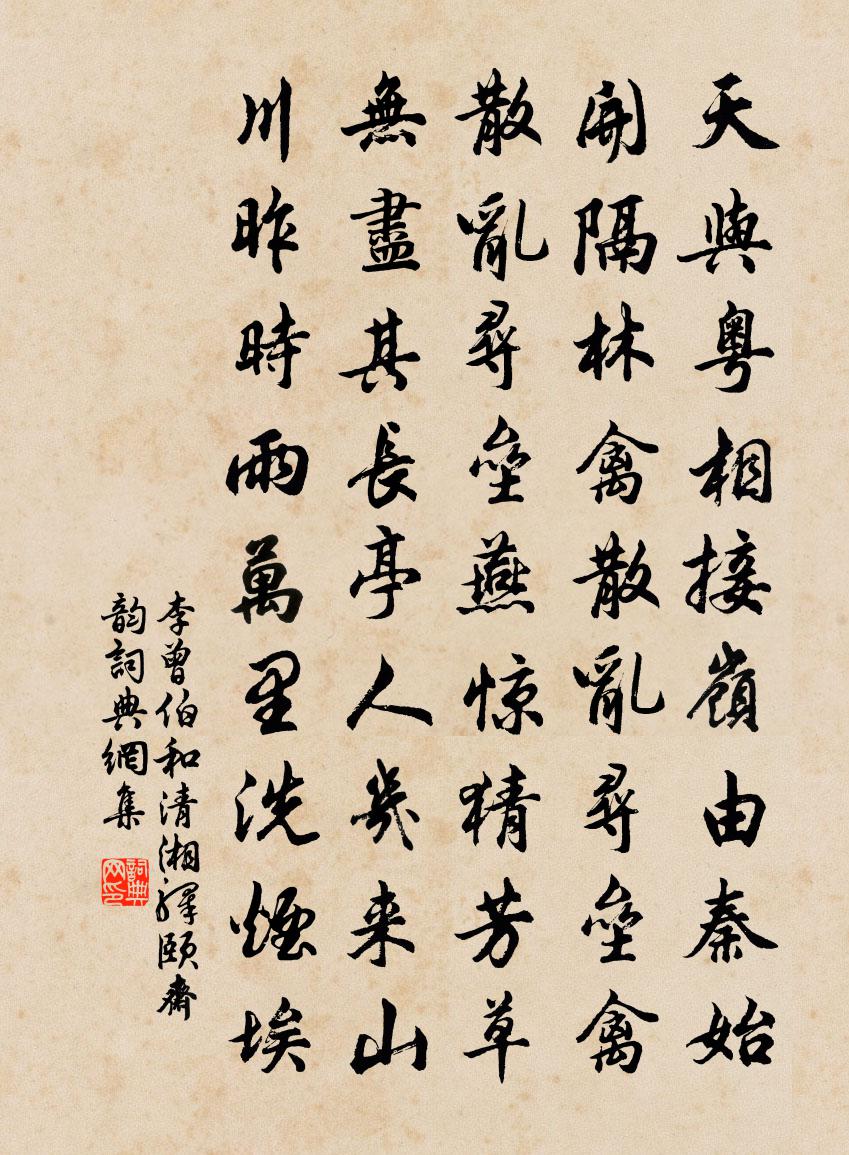 天與粵相接嶺由秦始
開隔林禽散亂尋垒禽
散亂尋垒燕惊猜芳草
無盡其長亭人幾来山
川昨時雨萬里洗煙埃
李曾伯和清湘驛頤齋
韵詞典網集
詞典网印